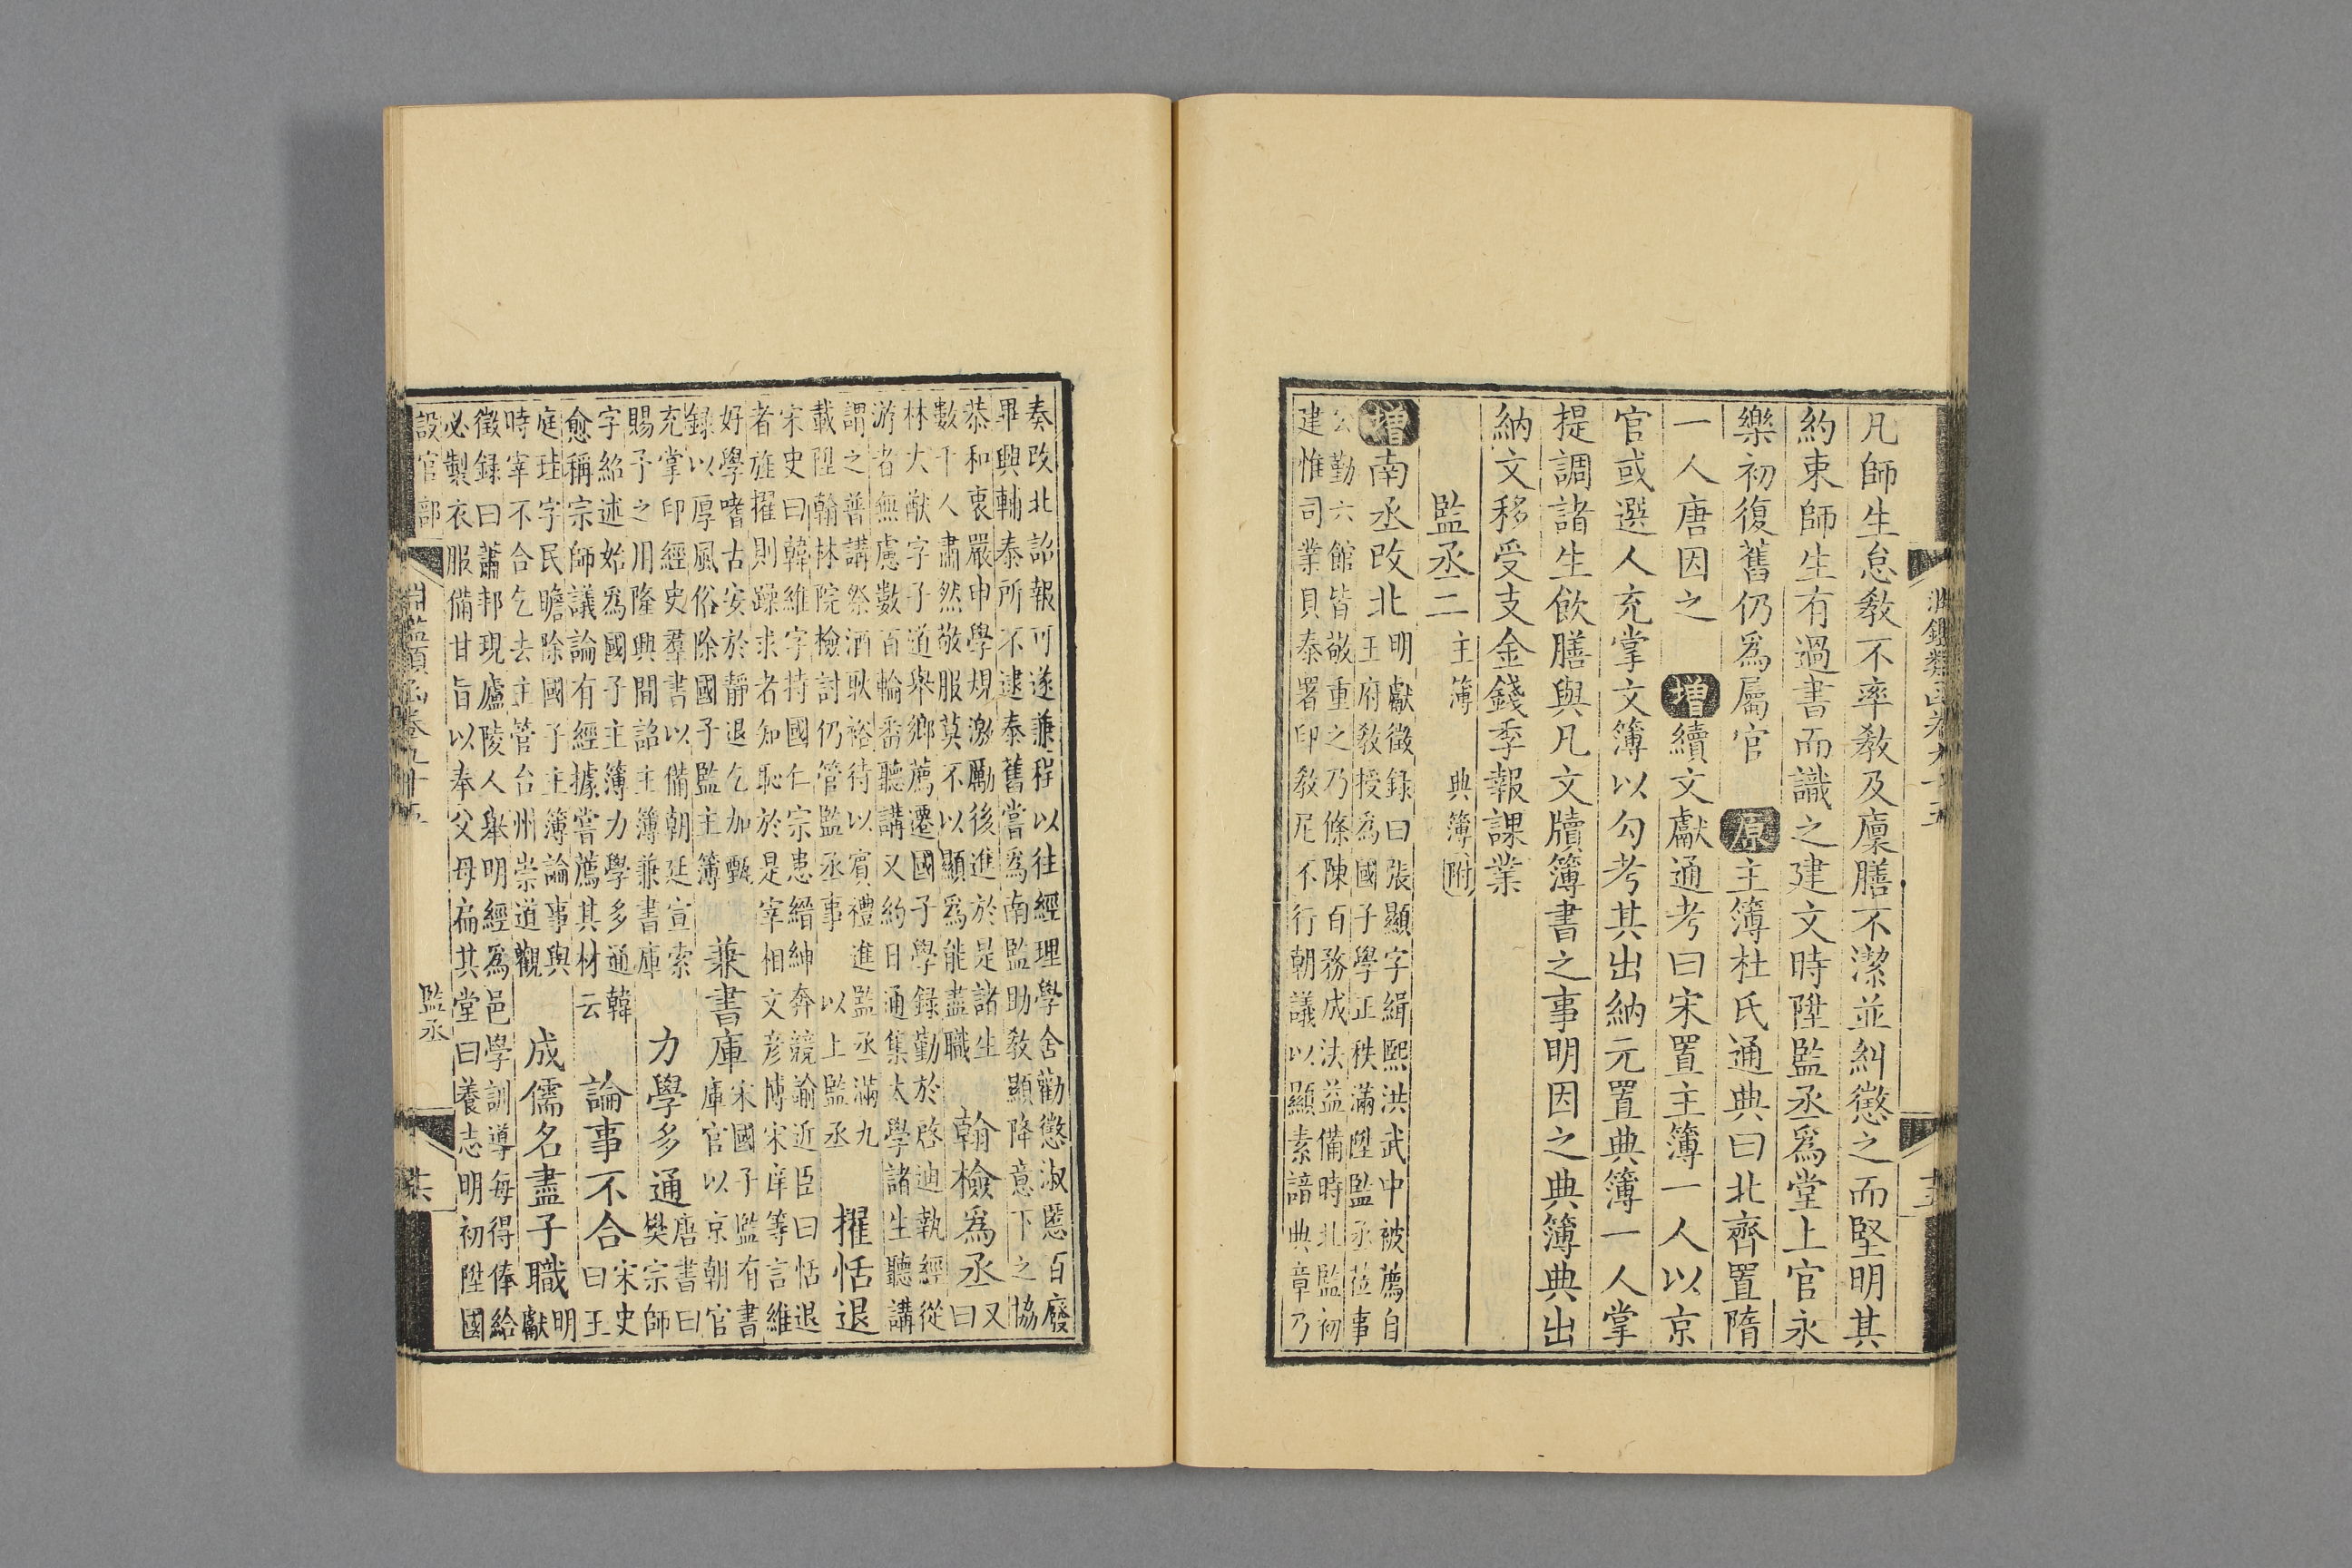 凡師生怠教不率教及廩膳不潔並糾懲之而堅明其
約束師生有過書而識之建文時陞監丞爲堂上官永
樂初復舊仍爲屬官　原主簿杜氏通典曰北齊置隋
一人唐因之　增續文獻通考曰宋置主簿一人以京
官或選人充掌文簿以勾考其出納元置典簿一人掌
提調諸生飲膳與凡文牘簿書之事明因之典簿典出
納文移受支金錢季報課業
監丞二　主簿　典簿附
增南丞改北
明獻徵錄曰張顯字緝熙洪武中被薦自
王府教授爲國子學正秩滿陞監丞莅事
公勤六館皆敬重之乃條陳百務成法益備時北監初
建惟司業貝泰署印教尼不行朝議以顯素諳典章乃
奏改北詔報可遂兼程以往經理學舍勸懲淑慝百廢
畢興輔泰所不逮泰舊嘗爲南監助教顯降意下之協
恭和衷嚴申學規激勵後進於是諸生
數千人肅然敬服莫不以顯爲能盡職
翰檢爲丞
又
曰
林大猷字子通舉鄉薦遷國子學録勤於啓迪執經從
游者無慮數百輪番聽講又約日通集太學諸生聽講
謂之普講祭酒耿裕待以賓禮進監丞滿九
載陞翰林院檢討仍管監丞事　以上監丞
擢恬退
宋史曰韓維字持國仁宗患縉紳奔競諭近臣曰恬退
者旌擢則躁求者知恥於是宰相文彥博宋庠等言維
好學嗜古安於靜退乞加甄
録以厚風俗除國子監主簿
兼書庫
宋國子監有書
庫官以京朝官
充掌印經史羣書以備朝廷宣索
賜予之用隆興間詔主簿兼書庫
力學多通
唐書曰
樊宗師
字紹述始爲國子主簿力學多通韓
愈稱宗師議論有經據嘗薦其材云
論事不合
宋史
曰王
庭珪字民瞻除國子主簿論事與
時宰不合乞去主管台州崇道觀
成儒名盡子職
明
獻
徵録曰蕭邦現廬陵人舉明經爲邑學訓導每得俸給
必製衣服備甘旨以奉父母扁其堂曰養志明初陞國
設官部
監丞